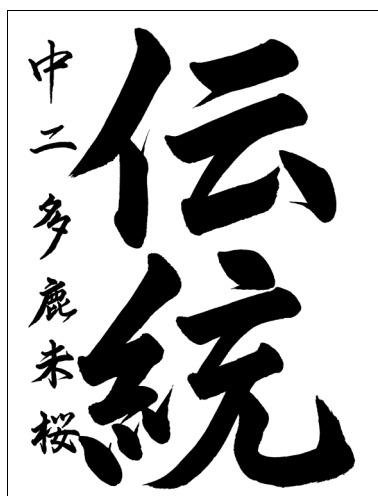 伝統
中二 多鹿未桜